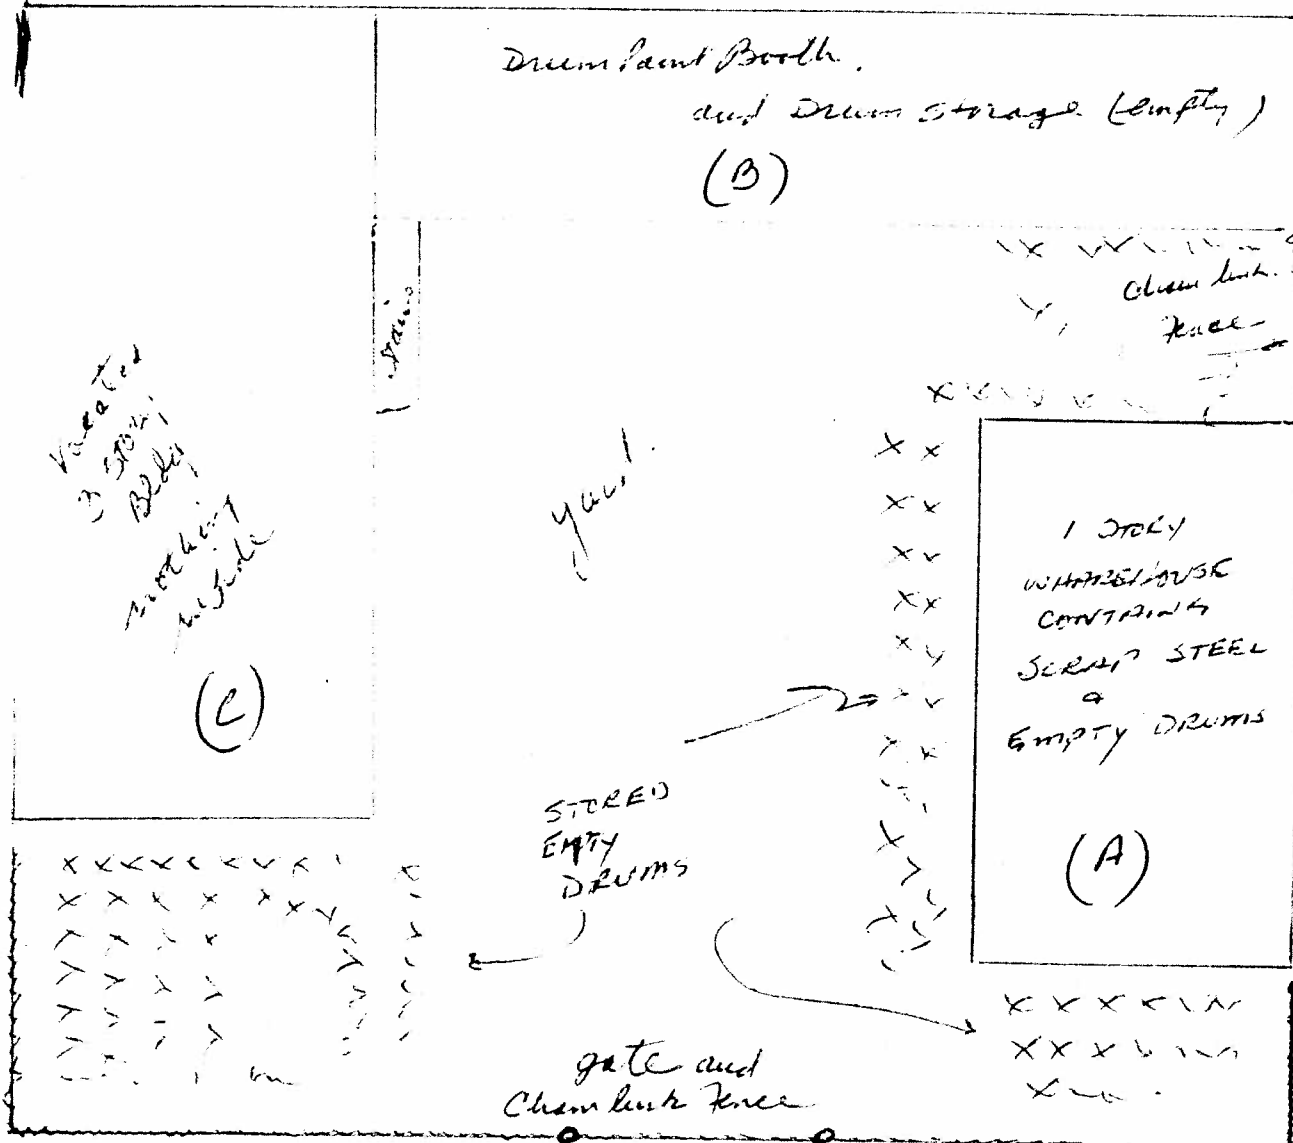 Drum Paint Booth.
and Drum Storage (empty)
(B)
Chain link
Fence
Vacated
3 Story
Bldg
nothing
inside
(C)
yard
1 STORY
WHAREHOUSE
CONTAINS
SCRAP STEEL
&
EMPTY DRUMS
(A)
STORED
EMPTY
DRUMS
gate and
Chain link Fence